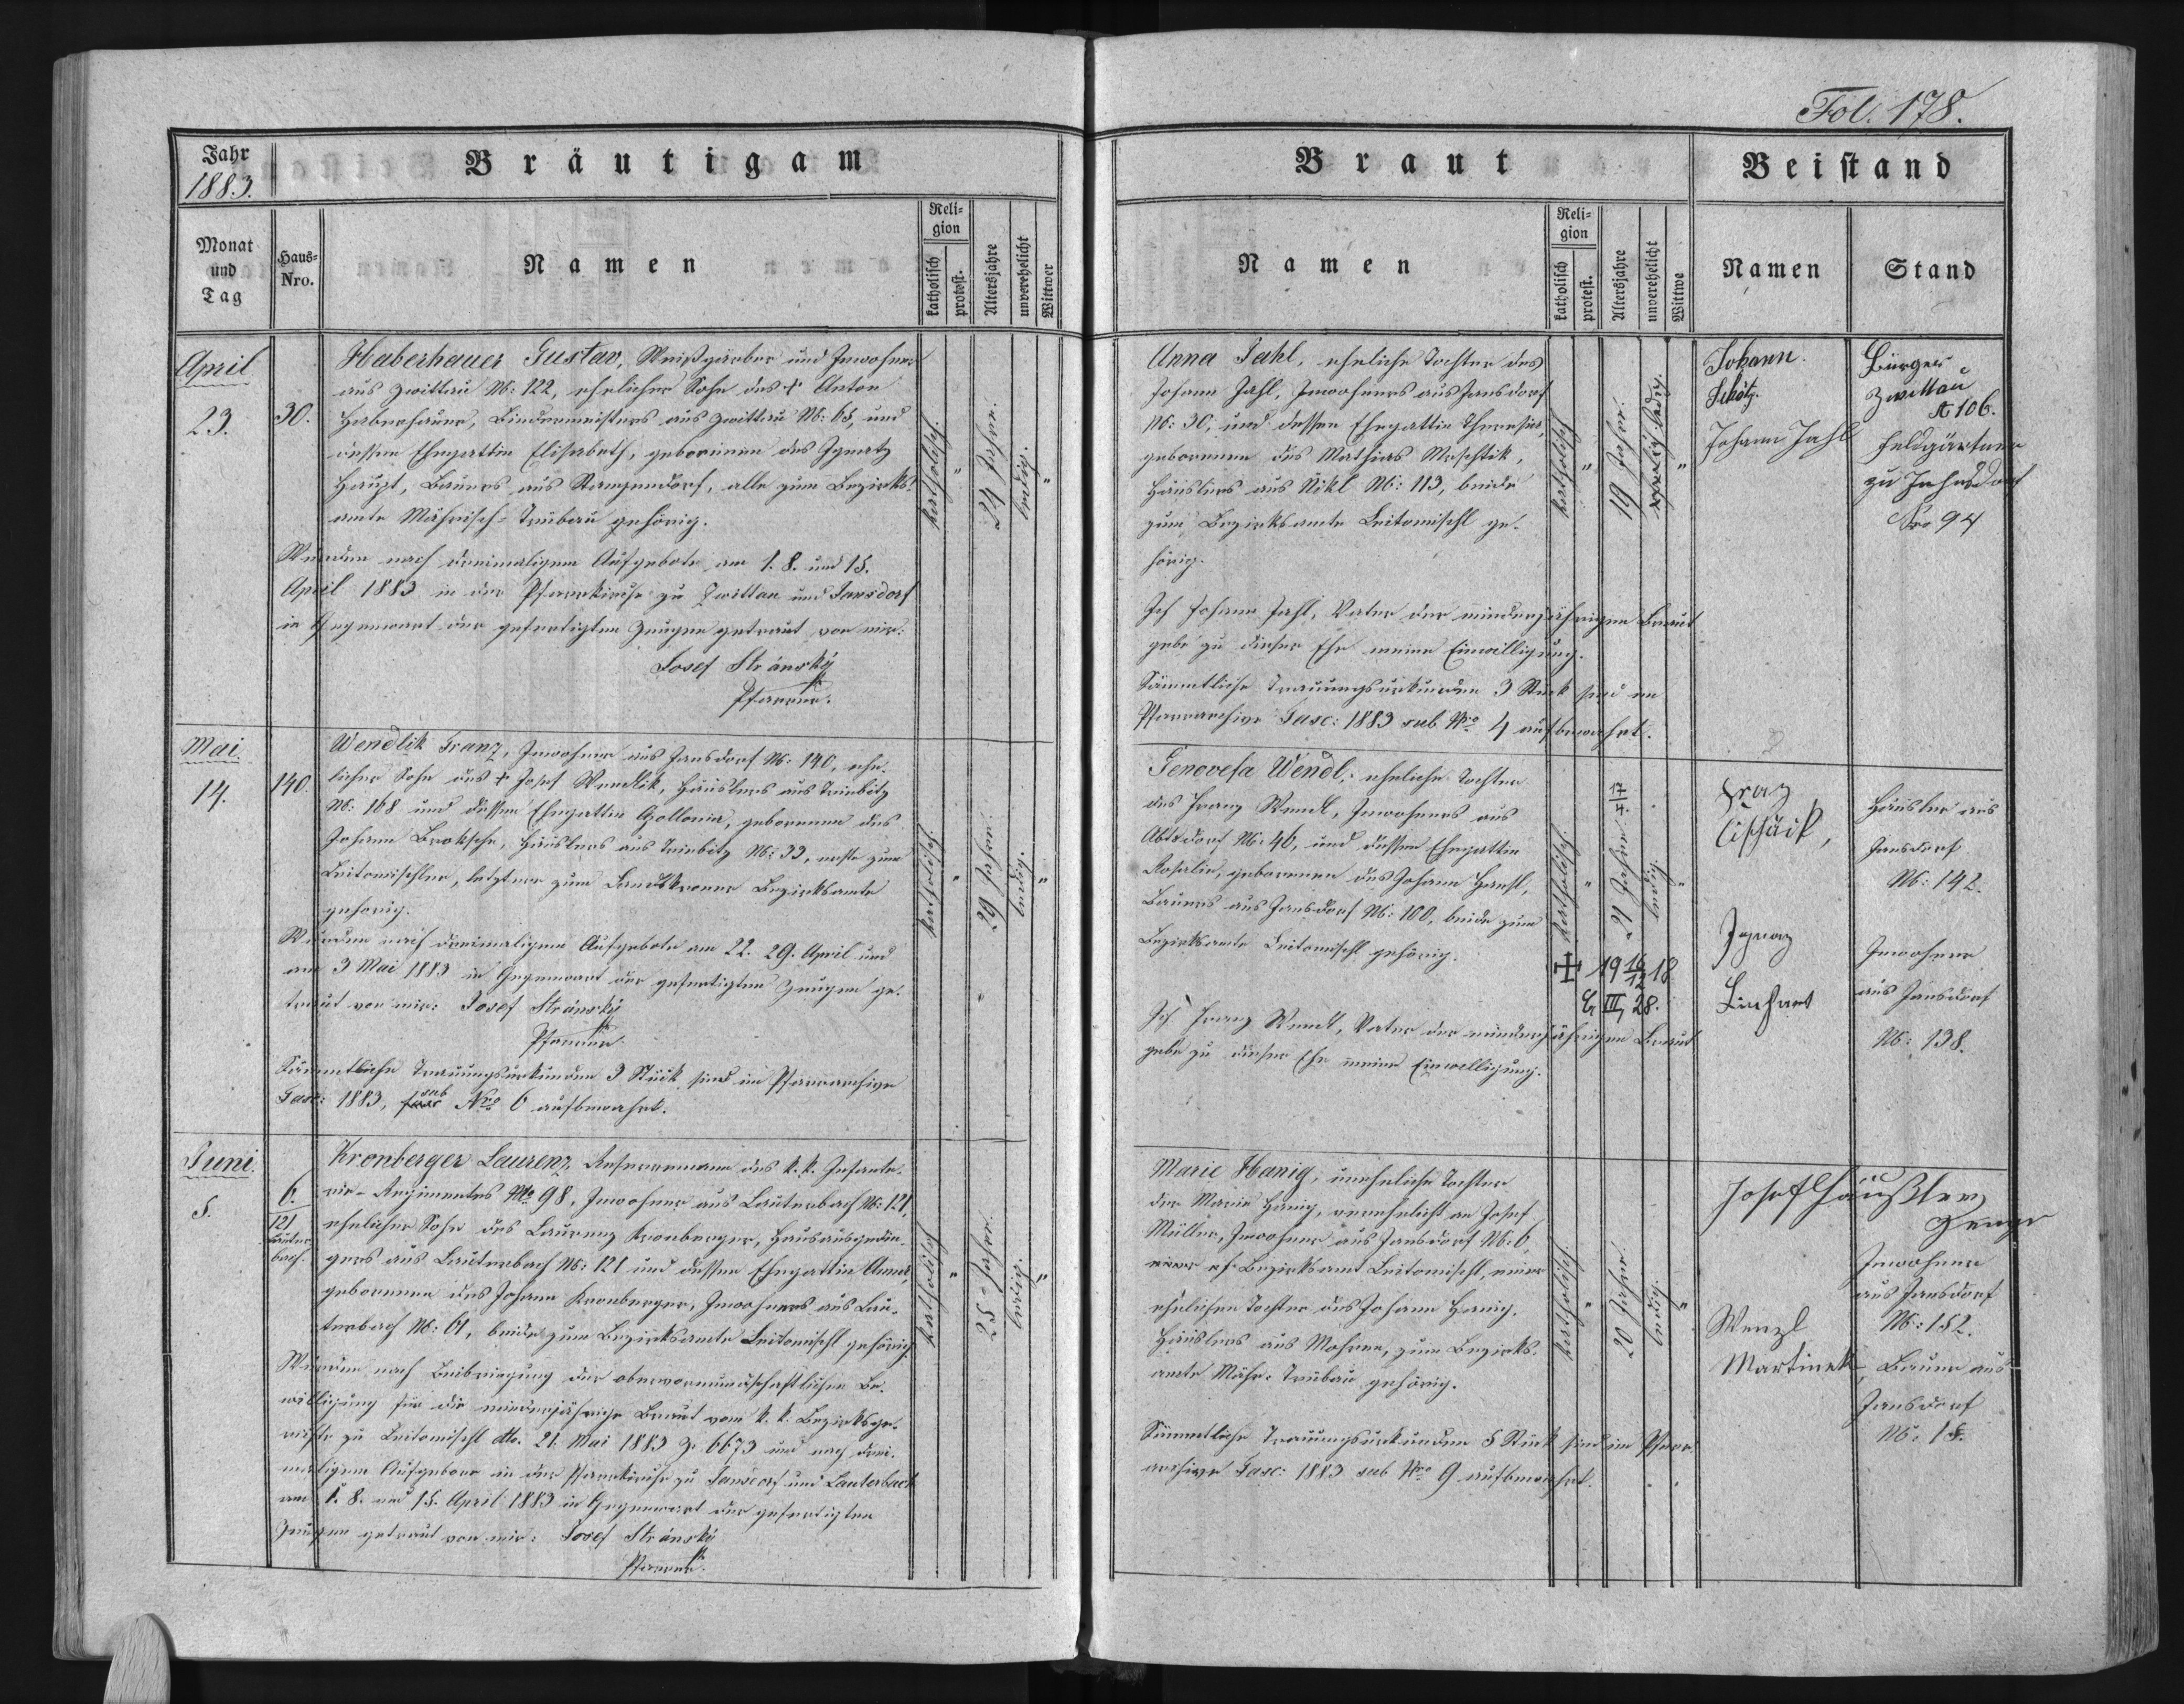 Fol. 178.
Jahr
1883.
Bräutigam
Braut
Beistand
Monat
und
Tag
Haus-
Nro.
Namen
Reli-
gion
katholisch
protest.
Altersjahre
unverehelicht
Wittwer
Namen
Reli-
gion
katholisch
protest.
Altersjahre
unverehelicht
Wittwe
Namen
Stand
April
23.
30.
Haberhauer Gustav, Weißgärber und Inwohner
aus Zwittau N: 122, ehelicher Sohn des + Anton
Haberhauer, Bindermeisters aus Zwittau N: 65, und
dessen Ehegattin Elisabeth, geborenen des Ignatz
Haupt, Bauers aus Stangendorf, alle zum Bezirks-
amte Mährisch-Trübau gehörig.
Wurden nach dreimaligem Aufgebote am 1. 8. und 15.
April 1883 in der Pfarrkirche zu Zwittau und Jansdorf
in Gegenwart der gefertigten Zeugen getraut von mir:
Josef Stránský
Pfarrer.
katholisch.
"
24 Jahre.
ledig.
"
Anna Jahl, eheliche Tochter des
Johann Jahl, Inwohners aus Jansdorf
N: 30, und dessen Ehegattin Theresia,
geborenen des Mathias Meschtik,
Häuslers aus Nikl N: 113, beide
zum Bezirksamte Leitomischl ge-
hörig.
Ich Johann Jahl, Vater der minderjährigen Braut
gebe zu dieser Ehe meine Einwilligung.
Sämmtliche Trauungsurkunden 3 Stück sind im
Pfarrarchive Fasc: 1883 sub Nro 4 aufbewahrt.
katholisch
"
19 Jahre.
ledig.
"
Johann
Schötz.
Johann Jahl
Bürger
Zwittau
A 106.
Feldgärtner
zu Jahnsdorf
Nro 94
Mai.
14.
140.
Wendlik Franz, Inwohner aus Jansdorf N: 140, ehe-
licher Sohn des + Josef Wendlik, Häuslers aus Triebitz
N: 168 und dessen Ehegattin Apollonia, geborenen des
Johann Broksche, Häuslers aus Triebitz N: 33, erste zum
Leitomischler, letztere zum Landskroner Bezirksamte
gehörig.
Wurden nach dreimaligem Aufgebote am 22. 29. April und
am 3 Mai 1883 in Gegenwart der gefertigten Zeugen ge-
traut von mir: Josef Stránský
Pfarrer.
Sämmtliche Trauungsurkunden 3 Stück sind im Pfarrarchive
Fasc: 1883, sub Nro 6 aufbewahrt.
katholisch.
"
29 Jahre.
ledig.
"
Genovefa Wendl, eheliche Tochter
des Franz Wendl, Inwohners aus
Abtsdorf N: 46, und dessen Ehegattin
Rosalia, geborenen des Johann Hansl,
Bauers aus Jansdorf N: 100, beide zum
Bezirksamte Leitomischl gehörig.
Ich Franz Wendl, Vater der minderjährigen Braut
gebe zu dieser Ehe meine Einwilligung.
katholisch.
"
21 Jahre
ledig.
"
19 16/12 18
III, 28.
Häusler aus
Jansdorf
N: 142.
Ignaz
Linhart
Inwohner
aus Jansdorf
N: 138.
Juni.
5.
6.
121
Lauter-
bach.
Kronberger Laurenz, Reservemann des k. k. Infante-
rie-Regimentes No 98, Inwohner aus Lauterbach N: 121,
ehelicher Sohn des Laurenz Kronberger, Hausausgedin-
gers aus Lauterbach N: 121 und dessen Ehegattin Anna,
geborenen des Johann Kronberger, Inwohners aus Lau-
terbach N: 61, beide zum Bezirksamte Leitomischl gehörig.
Wurden nach Beibringung der obervormundschaftlichen Be-
willigung für die minderjährige Braut vom k. k. Bezirksge-
richte zu Leitomischl dto. 21. Mai 1883 Z. 6673 und nach drei-
maligem Aufgebote in der Pfarrkirche zu Jansdorf und Lauterbach
am 1. 8. und 15. April 1883 in Gegenwart der gefertigten
Zeugen getraut von mir: Josef Stránský
Pfarrer.
katholisch
"
25 Jahre.
ledig.
"
Marie Hanig, uneheliche Tochter
der Maria Hanig, verehelicht an Josef
Müller, Inwohner aus Jansdorf N: 6,
Bezirksamt Leitomischl, einer
ehelichen Tochter des Johann Hanig,
Häuslers aus Mohren, zum Bezirks-
amte Mähr. Trübau gehörig.
Sämmtliche Trauungsurkunden 5 Stück sind im Pfarr-
archive Fasc: 1883 sub Nro 9 aufbewahrt.
katholisch
"
20 Jahre.
ledig.
"
Josef Häußler
Zeuge
Inwohner
aus Jansdorf
N: 152.
Wenzl
Martinek, Bauer aus
Jansdorf
N: 15.